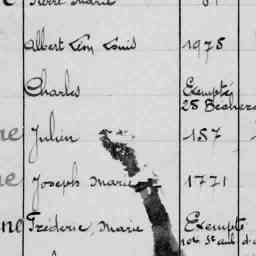 Pierre Marie
Albert Léon Louis 1978
Charles Exempté
28
Julien 187
Joseph Marie 1771
Fréderic, Marie Exempté